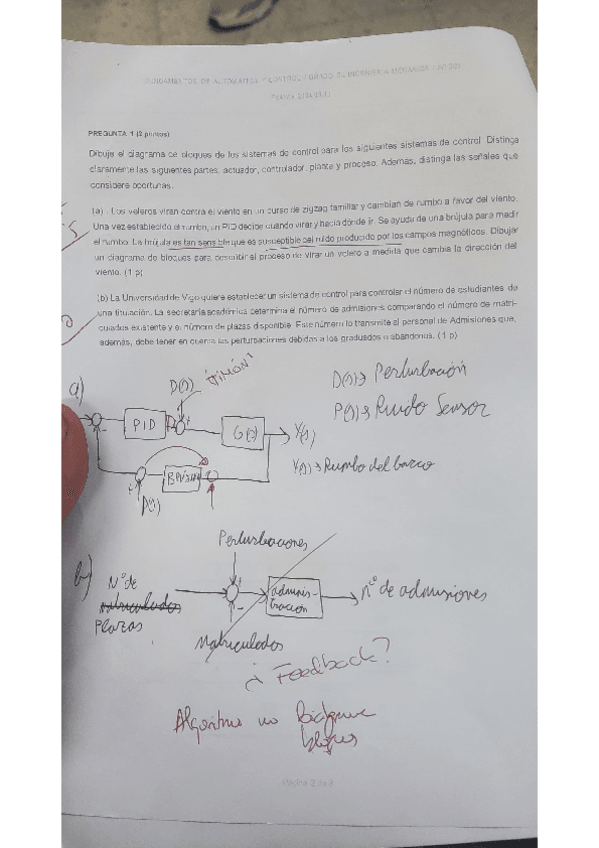 FUNDAMENTOS DE AUTOMÁTICA Y CONTROL / GRADO EN INGENIERÍA MECÁNICA
PREGUNTA 1 (2 puntos)
Dibuje el diagrama de bloques de los sistemas de control para los siguientes sistemas de control. Distinga
claramente las siguientes partes: actuador, controlador, planta y proceso. Además, distinga las señales que
considere oportunas.
(a) . Los veleros viran contra el viento en un curso de zigzag familiar y cambian de rumbo a favor del viento.
Una vez establecido el rumbo, un PID decide cuando virar y hacia dónde ir. Se ayuda de una brújula para medir
el rumbo. La brújula es tan sensible que es susceptible del ruido producido por los campos magnéticos. Dibujar
un diagrama de bloques para describir el proceso de virar un velero a medida que cambia la dirección del
viento. (1 p)
(b) La Universidad de Vigo quiere establecer un sistema de control para controlar el número de estudiantes de
una titulación. La secretaría académica determina el número de admisiones comparando el número de matri-
culados existente y el número de plazas disponible. Este número lo transmite al personal de Admisiones que,
además, debe tener en cuenta las perturbaciones debidas a los graduados o abandonos. (1 p)
a)
D(s)
"TIMÓN"
D(s)→ Perturbación
P(s)→ Ruido Sensor
PID
G(s)
Y(s)
Y(s)→ Rumbo del barco
D(s)
b)
Perturbaciones
Nº de
matriculados
Plazas
adminis-
tración
nº de admisiones
Matriculados
¿ Feedback?
Algoritmo no
bloques
Página 2 de